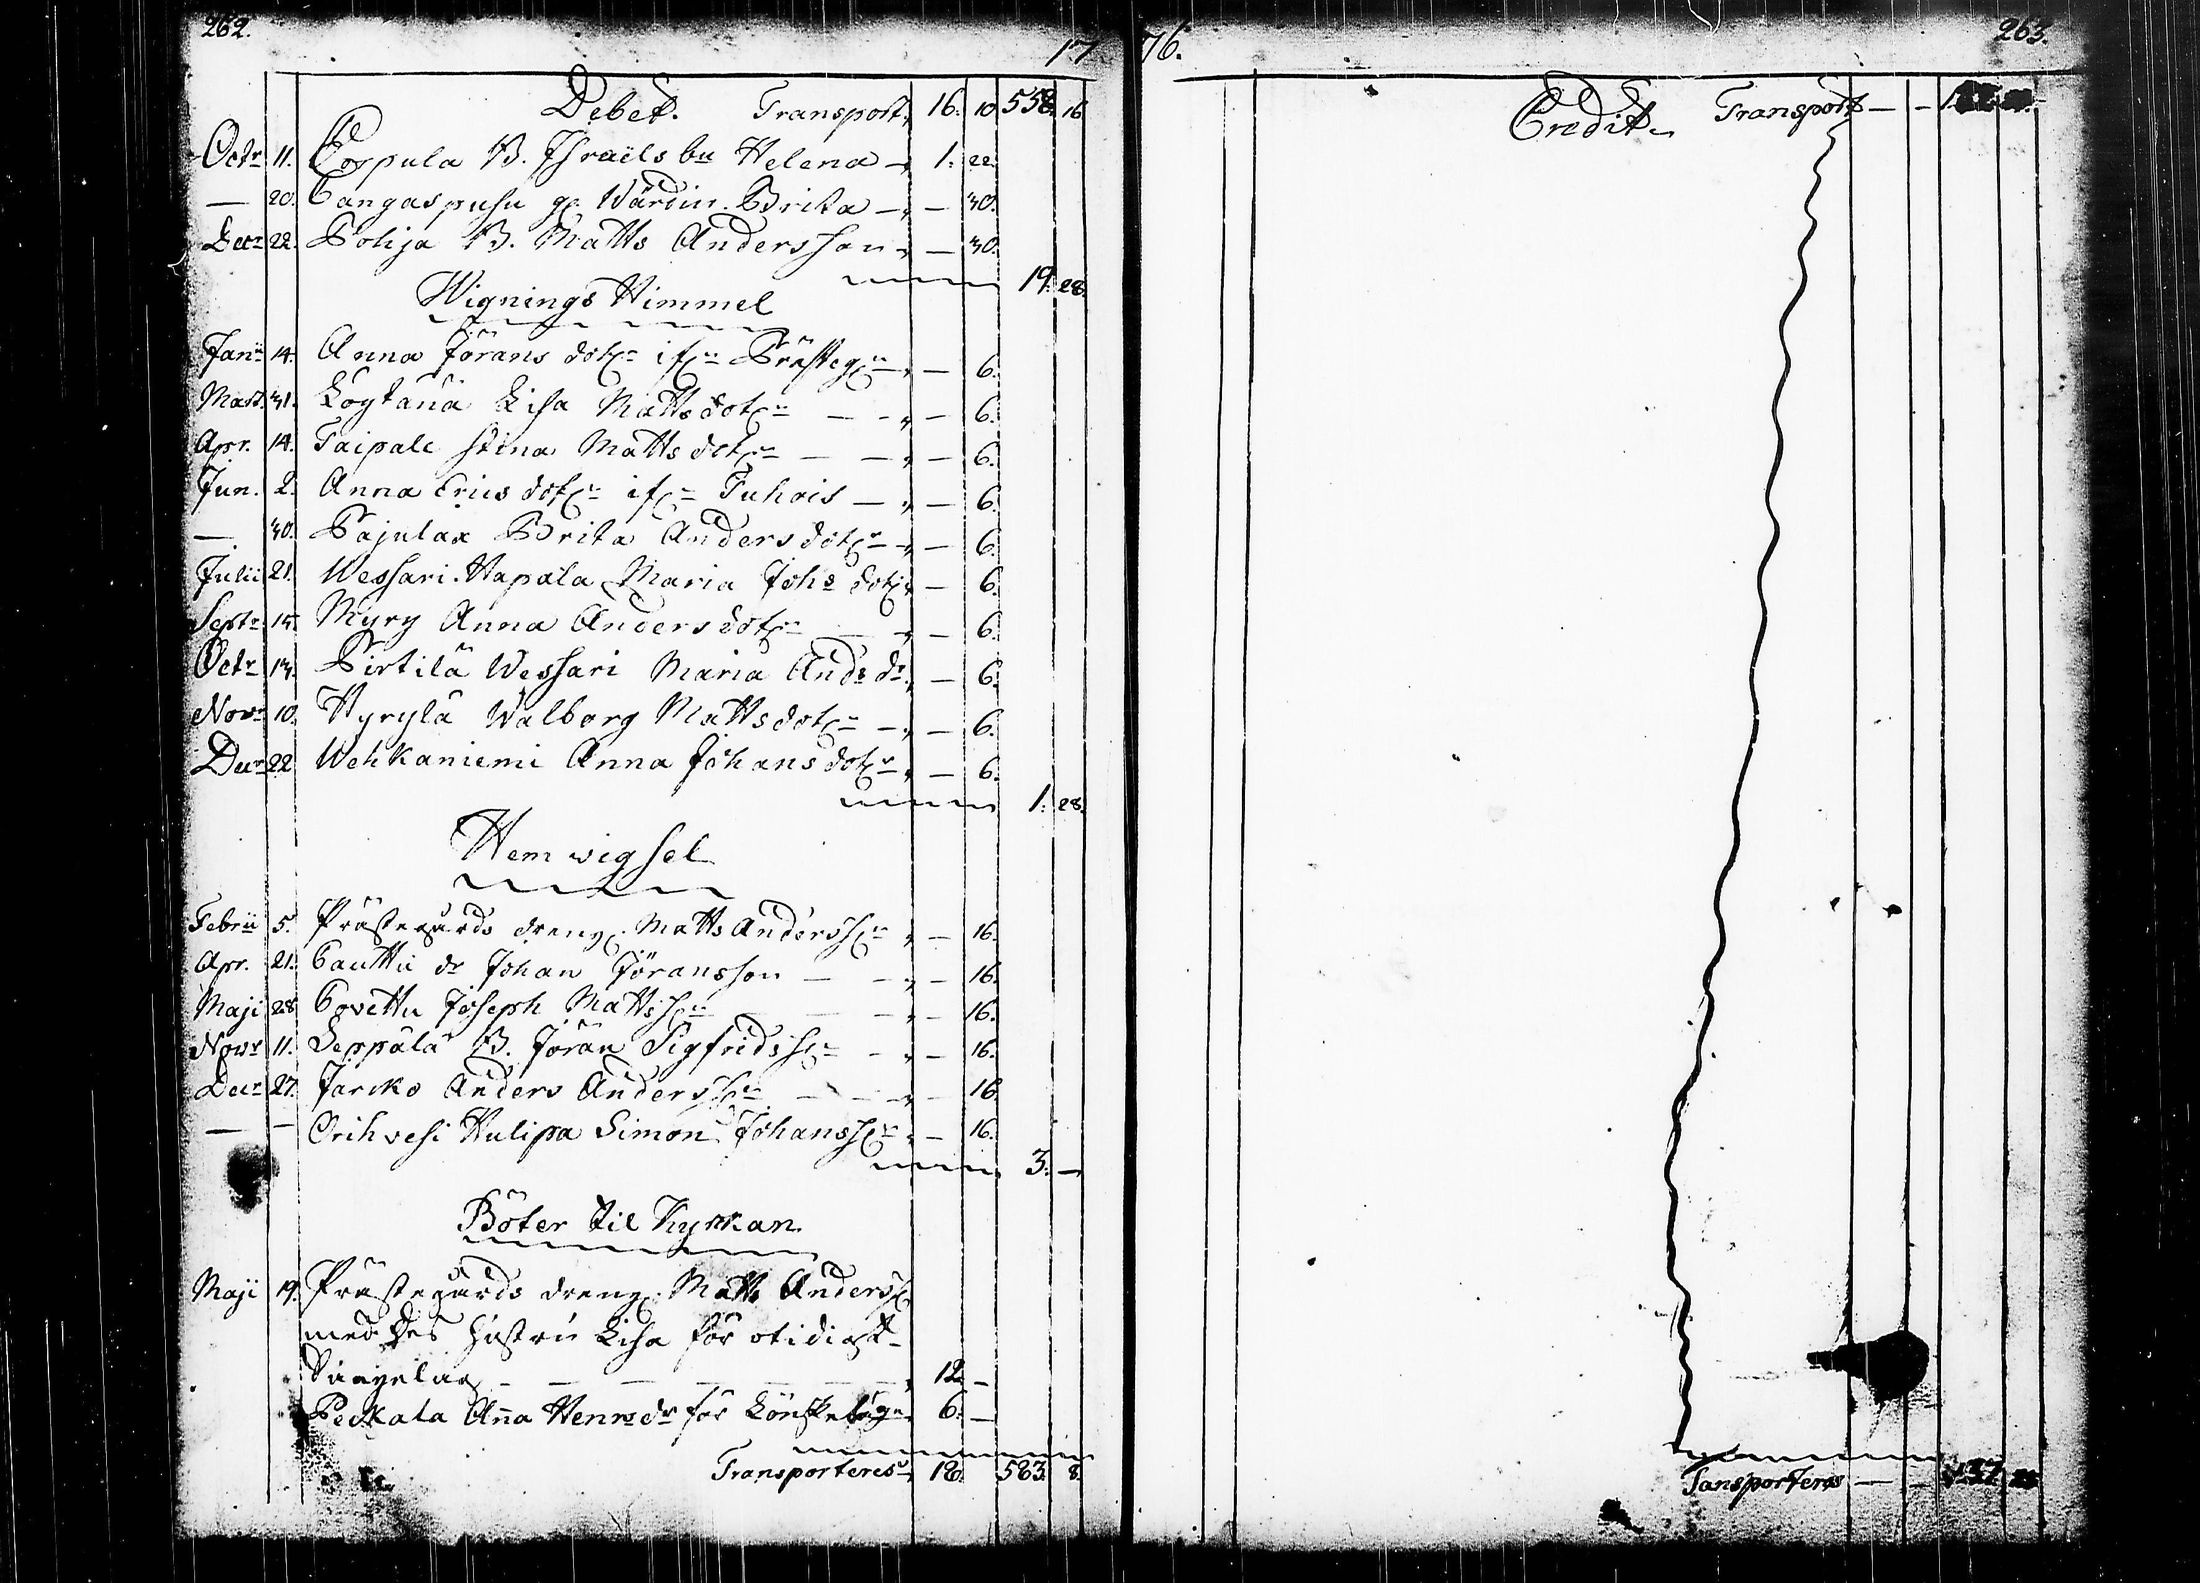 262.
17
Debet. Transport, 16. 10 558. 16
Octr 11. Corpula B. Israëls bu Helena — 1. 22.
— 20. Cangaspusu gl. Värdin. Brita — — 30.
Decr 22. Pohja B. Matts Andersson — 30.
19. 28.
Wignings Himmel
Janii 14. Anna Jörans dotr ifr Prästeg — 6.
Mart. 31. Löytänä Lisa Matts dotr — 6.
Apr. 14. Taipale Stina Matts dotr — 6.
Jun. 2. Anna Erics dotr ifr Juhois — 6.
— 30. Pajulax Brita Anders dotr — 6.
Julii 21. Wessari. Hapala Maria Johs dotr — 6.
Septr 15. Myry Anna Anders dotr — 6.
Octr 13. Pirtilä Wessari Maria Ands dr — 6.
Novr 10. Hyrylä Walborg Matts dotr — 6.
Decr 22 Wehkaniemi Anna Johans dotr — 6.
1. 28.
Hem wigsel
Febrii 5. Prästegårds dreng. Matts Anderss — 16.
Apr. 21. Cauttu dr Johan Jöransson — 16.
Maji 28 Covettu Joseph Mattss — 16.
Novr 11. Leppälä B. Jöran Sigfridss — 16.
Decr 27. Jarcko Anders Anderss — 16.
— — Orihvesi Hulipa Simon Johanss — 16.
3. —
Böter til Kyrkan
Maji 19. Prästegårds dreng. Matts Anderss
med Des hustru Lisa för otidigt
Sängelag — 12 —
Peckala Aña Henrs dr för Lönskeläge 6. —
Transporteres 18. 583. 8.
76.
263.
Credit. Transport — —
Tansporteres — —